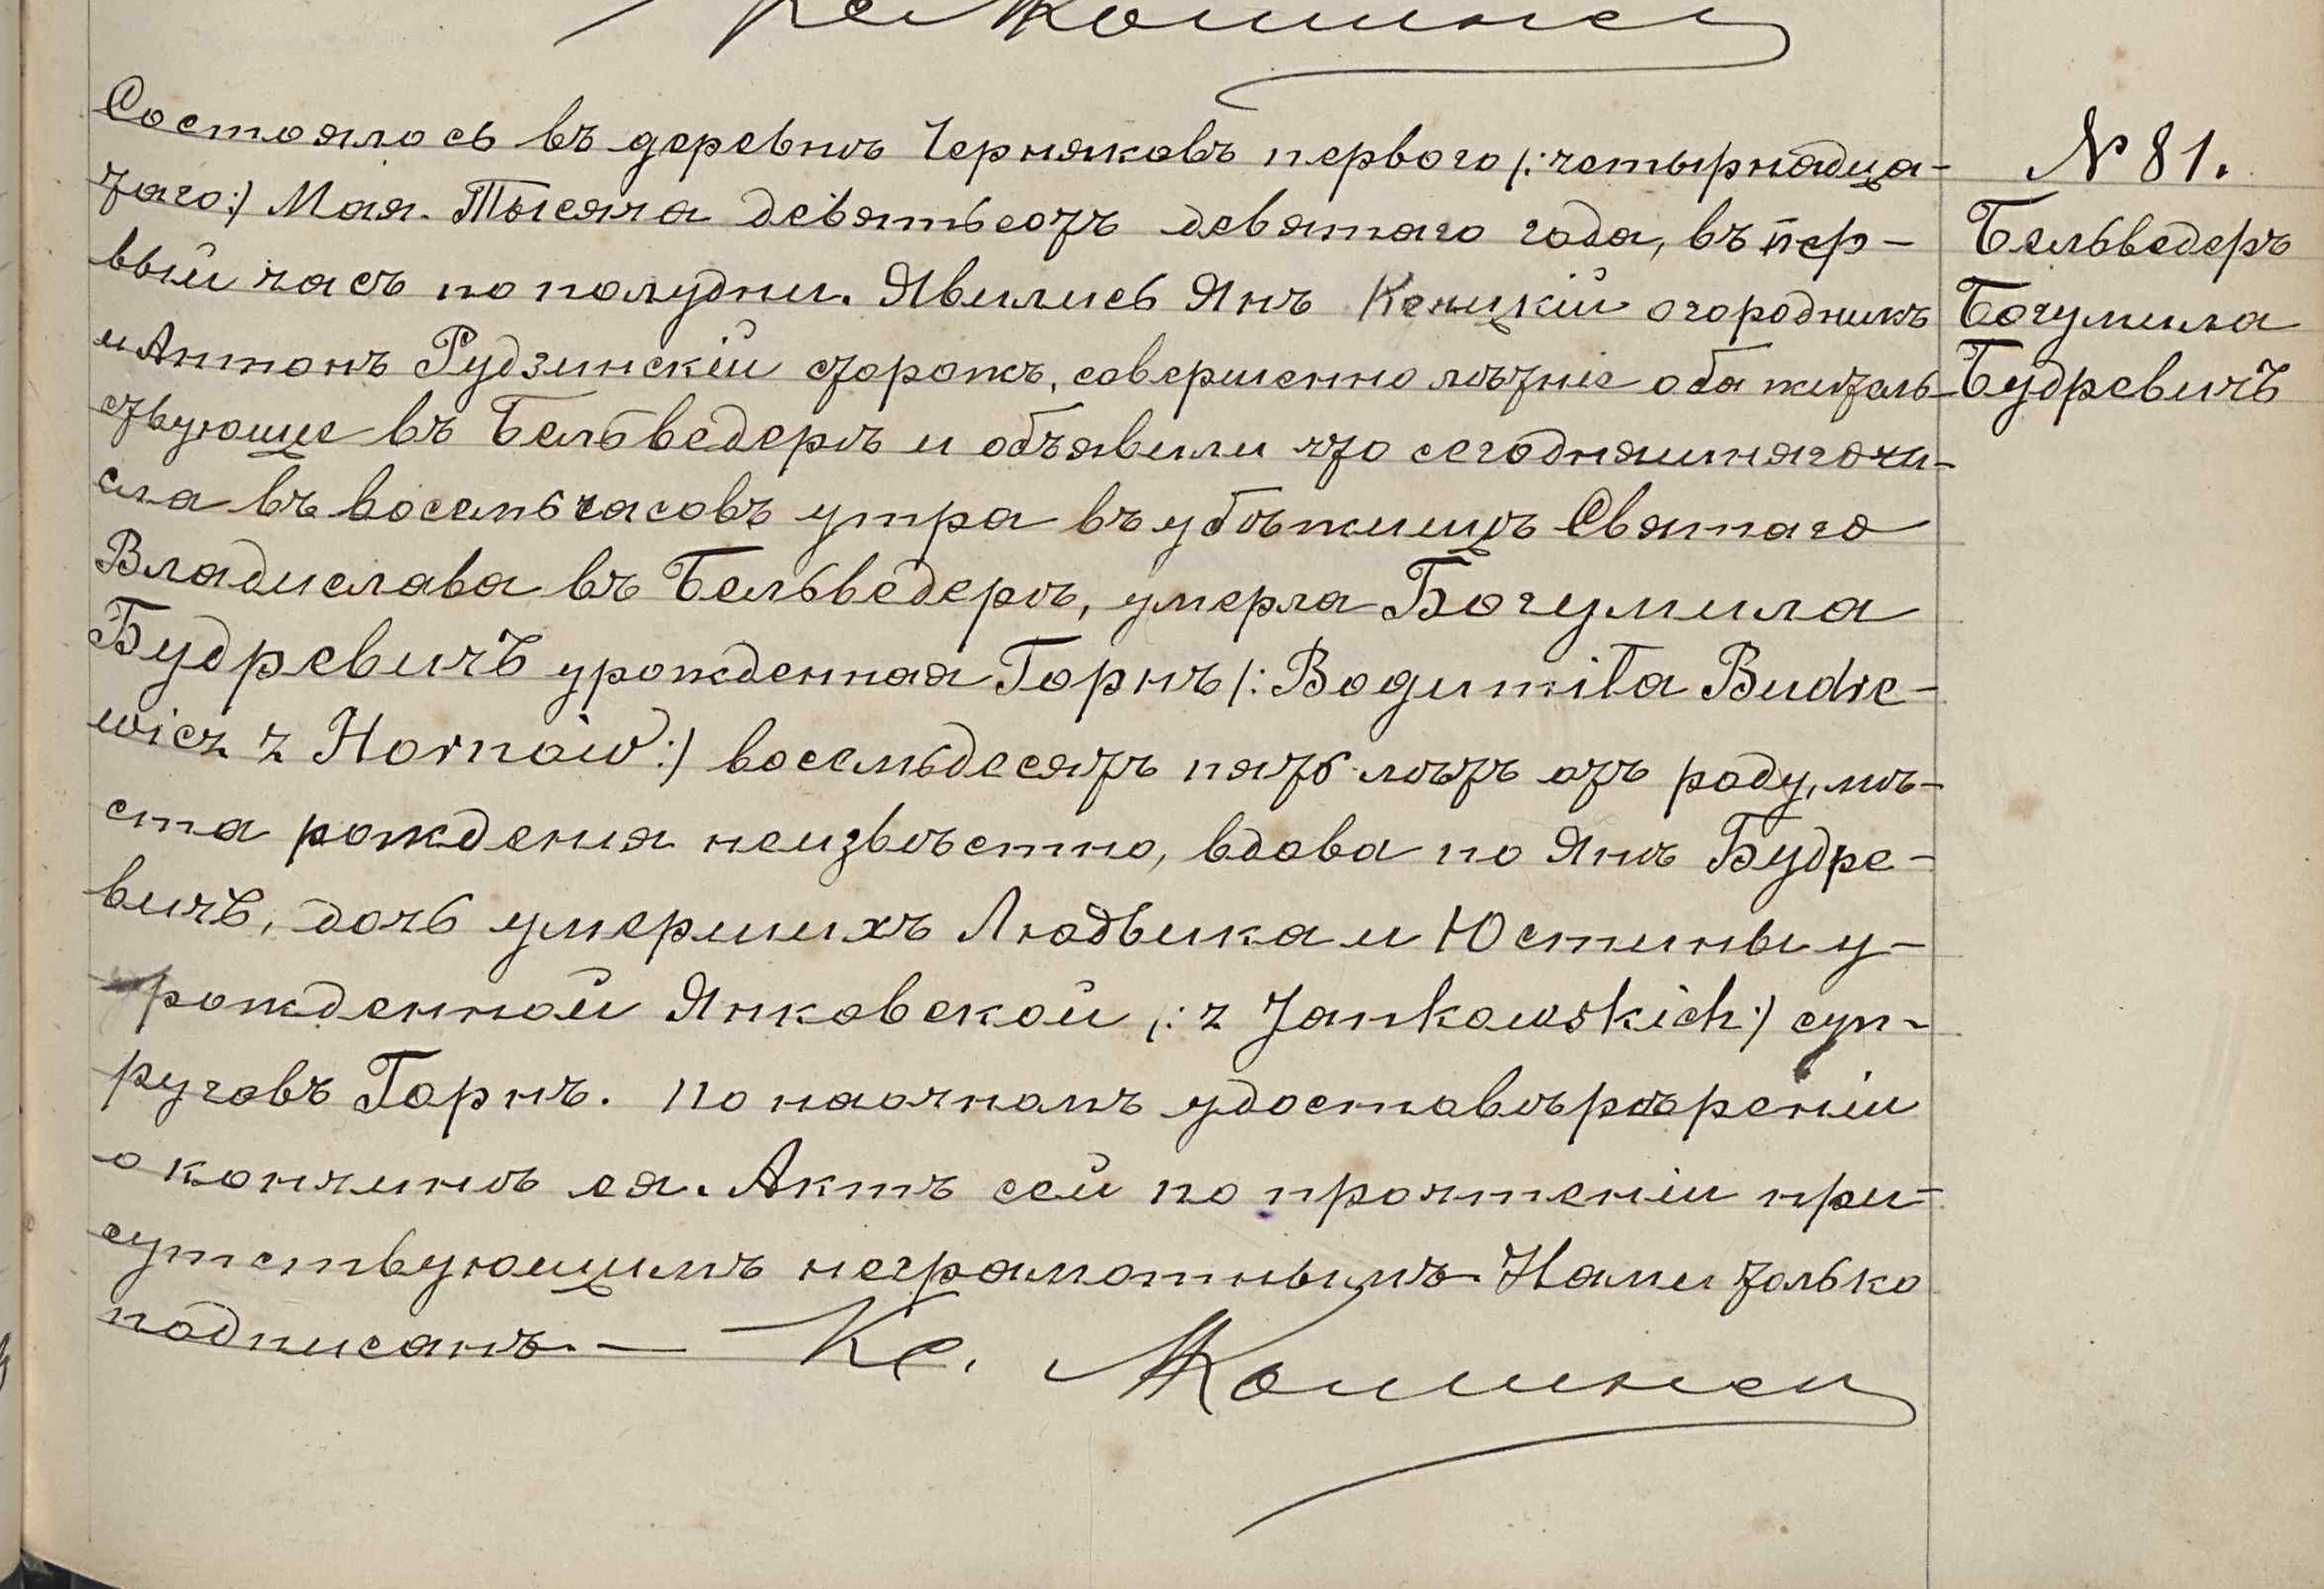 Состоялось въ деревнѣ Черняковъ первого /:четырнадца-
таго:/ Мая. Тысяча девятьсотъ девятаго года, въ пер-
вый часъ по полудни. Явились Янъ Кеницкій огородникъ
и Антонъ Рудзинскій сторожъ, совершеннолѣтніе оба житель-
ствующіе въ Бельведерѣ и объявили что сегодняшняго чи-
сла въ восемь часовъ утра въ убѣжищѣ Святаго
Владислава въ Бельведерѣ, умерла Богумила
Будревичъ урожденная Горнъ /:Bogumiła Budre-
wicz z Hornów:/ восемьдесятъ пять лѣтъ отъ роду, мѣ-
ста рожденія неизвѣстно, вдова по Янѣ Будре-
вичъ, дочь умершихъ Людвика и Юстины у-
рожденной Янковской /:z Jankowskich:/ суп-
руговъ Горнъ. По наочномъ удостовѣрѣреніи
о кончинѣ ея. Актъ сей по прочтеніи при-
сутствующимъ неграмотнымъ Нами только
подписанъ. —
№ 81.
Бельведеръ
Богумила
Будревичъ